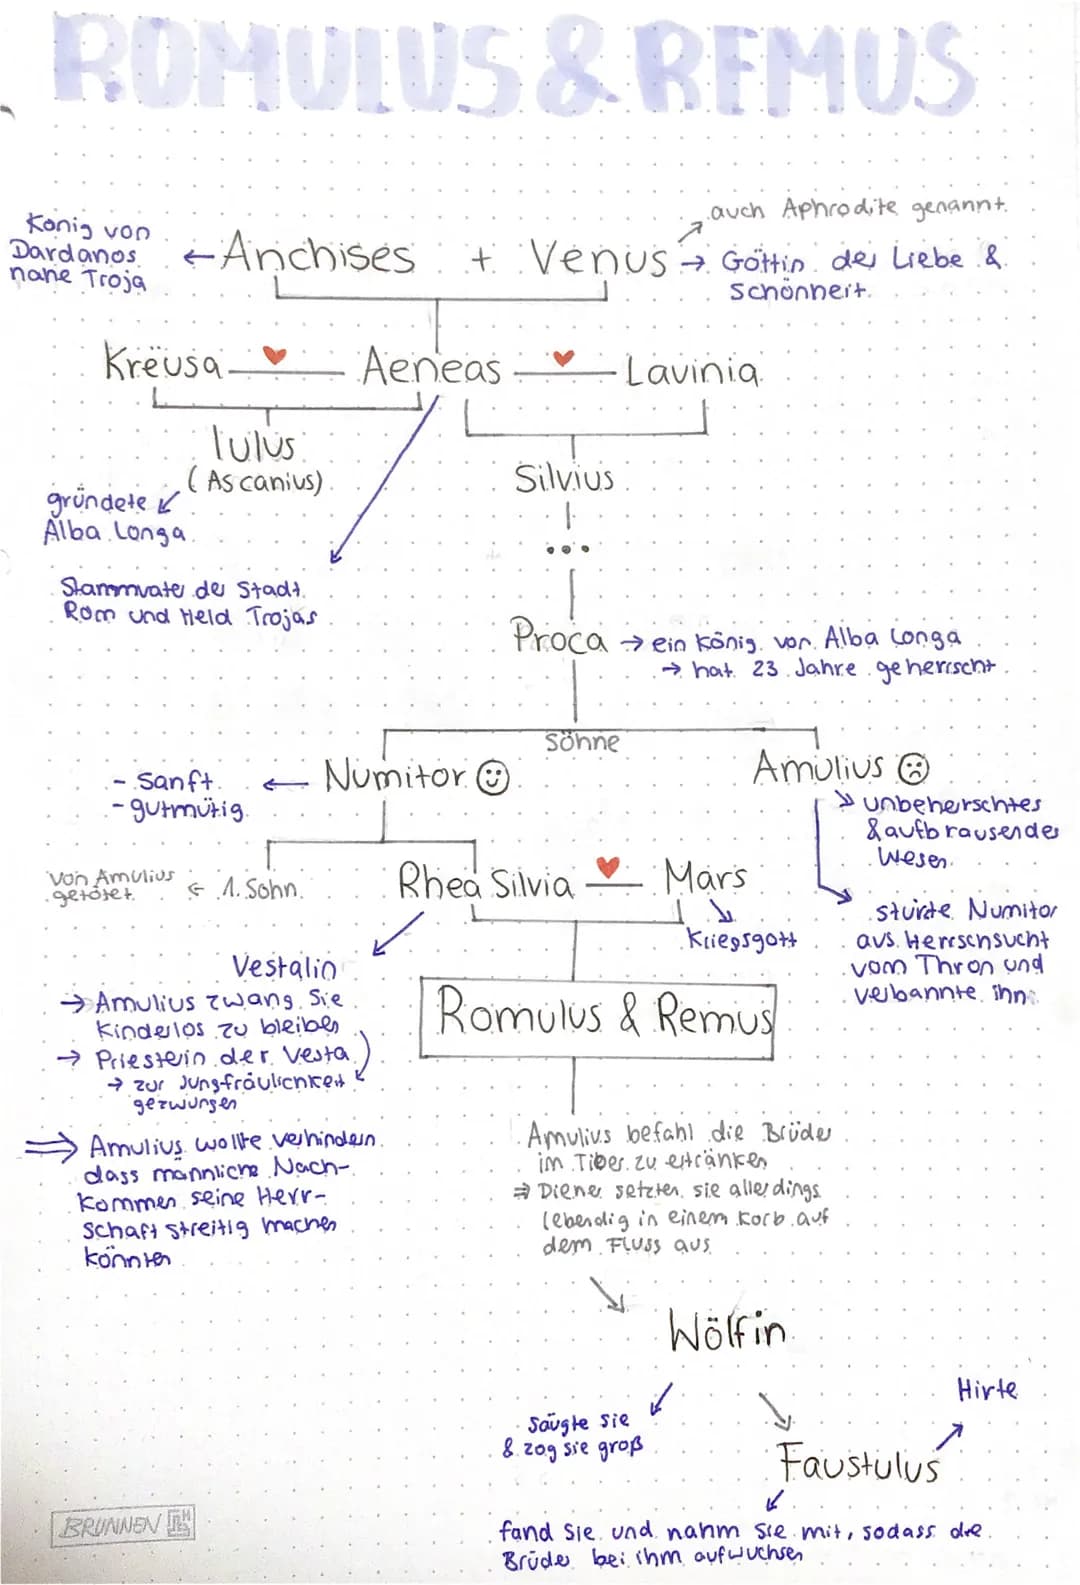 ROMULUS & REMUS
auch Aphrodite genannt.
König von
Dardanos
nahe Troja
← Anchises + Venus → Göttin der Liebe &
Schönheit.
Kreusa ♥ Aeneas ♥ Lavinia
Iulus
(Ascanius)
Silvius
gründete
Alba Longa
...
Stammvater der Stadt
Rom und Held Trojas
Proca → ein König von Alba Longa
→ hat 23 Jahre geherrscht
Söhne
- sanft ← Numitor ☺
- gutmütig
Amulius ☹
unbeherschtes
& aufbrausendes
Wesen
von Amulius
getötet
← 1. Sohn
Rhea Silvia ♥ Mars
Kriegsgott
stürzte Numitor
aus Herrschsucht
vom Thron und
verbannte ihn
Vestalin
→ Amulius zwang sie
kinderlos zu bleiben
→ Priesterin der Vesta
→ zur Jungfräulichkeit
gezwungen
Romulus & Remus
⇒ Amulius wollte verhindern
dass männliche Nach-
kommen seine Herr-
schaft streitig machen
könnten
Amulius befahl die Brüder
im Tiber zu ertränken
⇒ Diener setzten sie allerdings
lebendig in einem Korb auf
dem Fluss aus
Wölfin
säugte sie
& zog sie groß
Hirte
Faustulus
fand sie und nahm sie mit, sodass die
Brüder bei ihm aufwuchsen
BRUNNEN